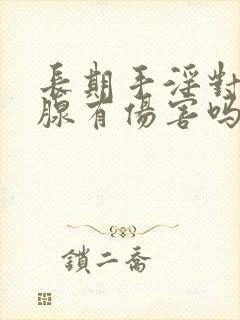 長期手淫對
腺有傷害嗎
鎖二喬